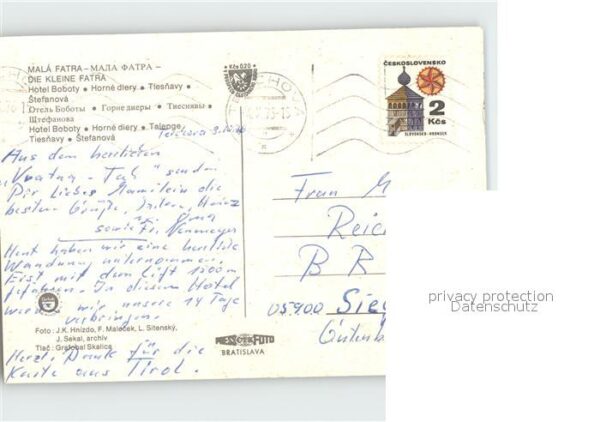 MALÁ FATRA – МАЛА ФАТРА –
DIE KLEINE FATRA
Hotel Boboty • Horné diery • Tiesňavy •
Štefanová
Отель Боботы • Горне диеры • Тиеснявы •
Штефанова
Hotel Boboty • Horné diery • Talenge
Tiesňavy • Štefanová
Kčs 0,20
ČESKOSLOVENSKO
2
Kčs
SLOVENSKO - HRONSEK
Aus dem herrlichen
"Vratna - Tal" senden
Dir liebes Mamilein die
besten Grüße, Heinz
u. Oma
sowie Fr.
Heut haben wir eine herrliche
Wandung unternommen.
Erst mit dem Lift 1200m
gefahren. In diesem Hotel
werden wir unsere 14 Tage
verbringen.
Herzl. Dank für die
Karte aus Tirol.
Frau M
Reic
B R
05900 Sie
Gutenb
Foto: J.K. Hnízdo, F. Maleček, L. Sitenský,
J. Sekal, archiv
Tlač: Grafobal Skalica
BRATISLAVA
privacy protection
Datenschutz